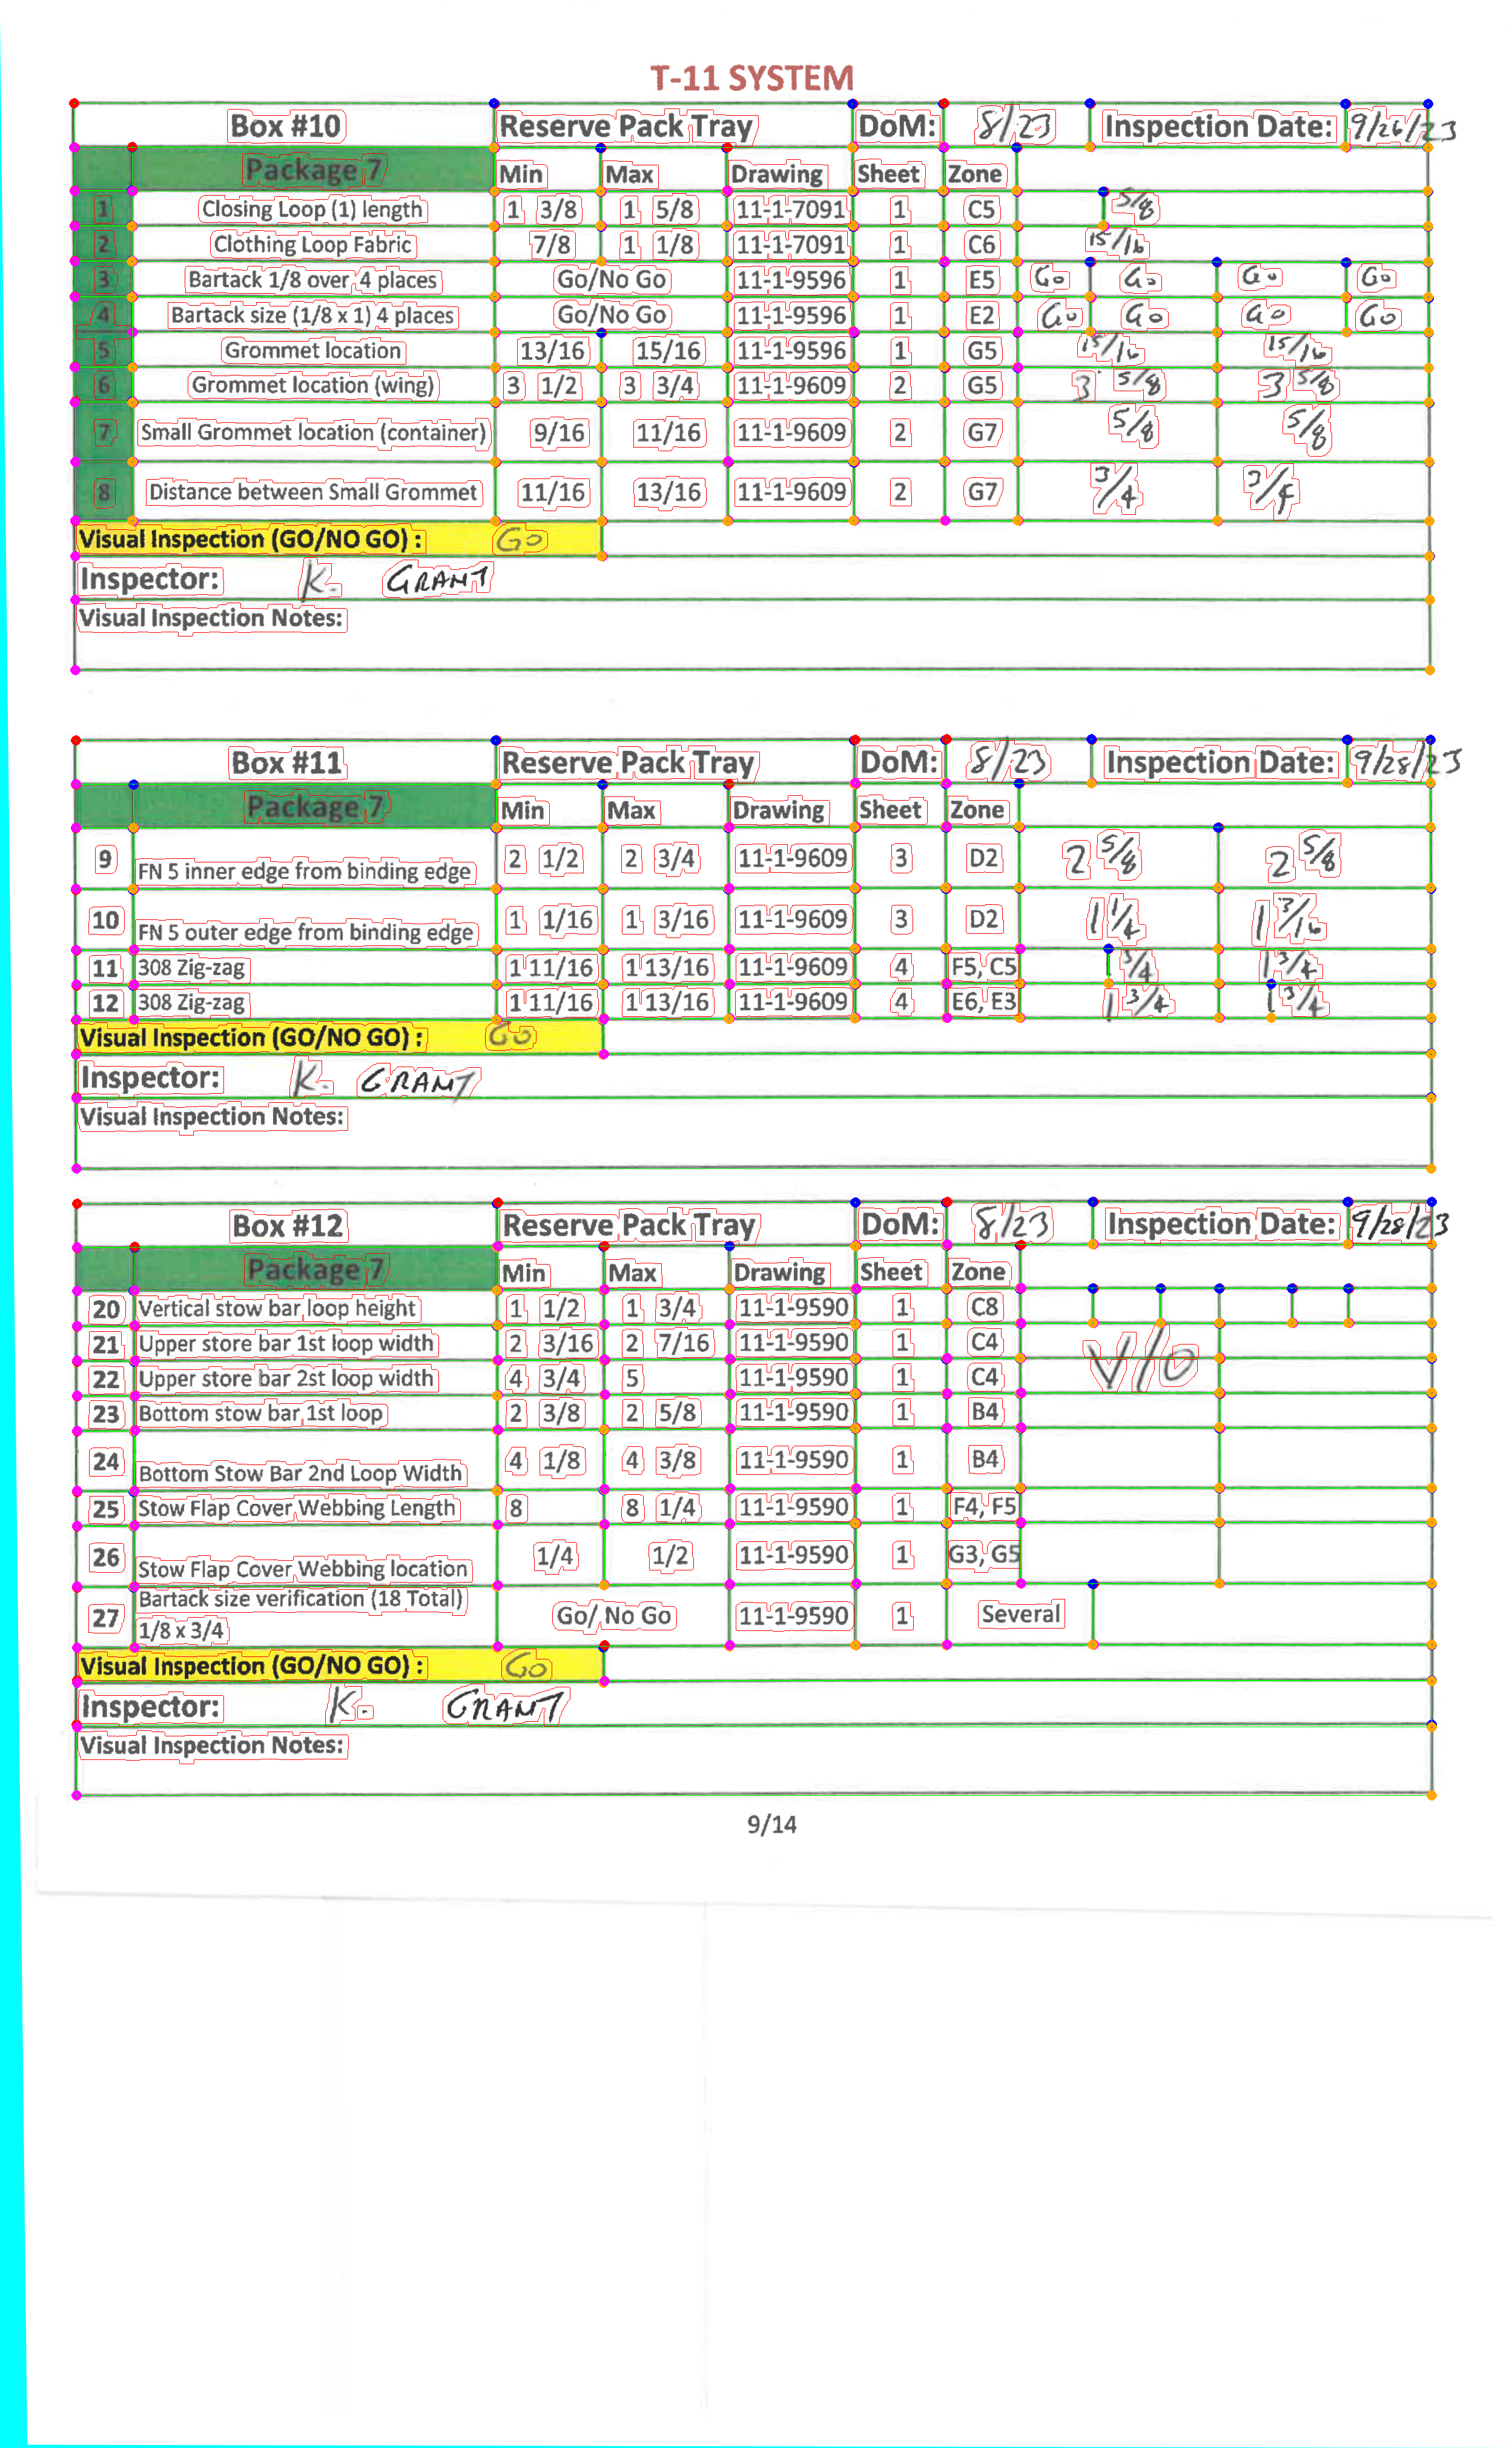 T-11 SYSTEM
Box #10 Reserve Pack Tray DoM: 8/23 Inspection Date: 9/26/23
Package 7 Min Max Drawing Sheet Zone
1 Closing Loop (1) length 1 3/8 1 5/8 11-1-7091 1 C5 5/8
2 Clothing Loop Fabric 7/8 1 1/8 11-1-7091 1 C6 15/16
3 Bartack 1/8 over 4 places Go/No Go 11-1-9596 1 E5 Go Go Go Go
4 Bartack size (1/8 x 1) 4 places Go/No Go 11-1-9596 1 E2 Go Go Go Go
5 Grommet location 13/16 15/16 11-1-9596 1 G5 15/16 15/16
6 Grommet location (wing) 3 1/2 3 3/4 11-1-9609 2 G5 3 5/8 3 5/8
7 Small Grommet location (container) 9/16 11/16 11-1-9609 2 G7 5/8 5/8
8 Distance between Small Grommet 11/16 13/16 11-1-9609 2 G7 3/4 3/4
Visual Inspection (GO/NO GO) : GO
Inspector: K. GRANT
Visual Inspection Notes:
Box #11 Reserve Pack Tray DoM: 8/23 Inspection Date: 9/28/23
Package 7 Min Max Drawing Sheet Zone
9 FN 5 inner edge from binding edge 2 1/2 2 3/4 11-1-9609 3 D2 2 5/8 2 5/8
10 FN 5 outer edge from binding edge 1 1/16 1 3/16 11-1-9609 3 D2 1 1/4 1 3/16
11 308 Zig-zag 1 11/16 1 13/16 11-1-9609 4 F5, C5 3/4 1 3/4
12 308 Zig-zag 1 11/16 1 13/16 11-1-9609 4 E6, E3 1 3/4 1 3/4
Visual Inspection (GO/NO GO) : GO
Inspector: K. GRANT
Visual Inspection Notes:
Box #12 Reserve Pack Tray DoM: 8/23 Inspection Date: 9/28/23
Package 7 Min Max Drawing Sheet Zone
20 Vertical stow bar loop height 1 1/2 1 3/4 11-1-9590 1 C8
21 Upper store bar 1st loop width 2 3/16 2 7/16 11-1-9590 1 C4 V/O
22 Upper store bar 2st loop width 4 3/4 5 11-1-9590 1 C4
23 Bottom stow bar 1st loop 2 3/8 2 5/8 11-1-9590 1 B4
24 Bottom Stow Bar 2nd Loop Width 4 1/8 4 3/8 11-1-9590 1 B4
25 Stow Flap Cover Webbing Length 8 8 1/4 11-1-9590 1 F4, F5
26 Stow Flap Cover Webbing location 1/4 1/2 11-1-9590 1 G3, G5
27 Bartack size verification (18 Total) 1/8 x 3/4 Go/ No Go 11-1-9590 1 Several
Visual Inspection (GO/NO GO) : GO
Inspector: K. GRANT
Visual Inspection Notes:
9/14